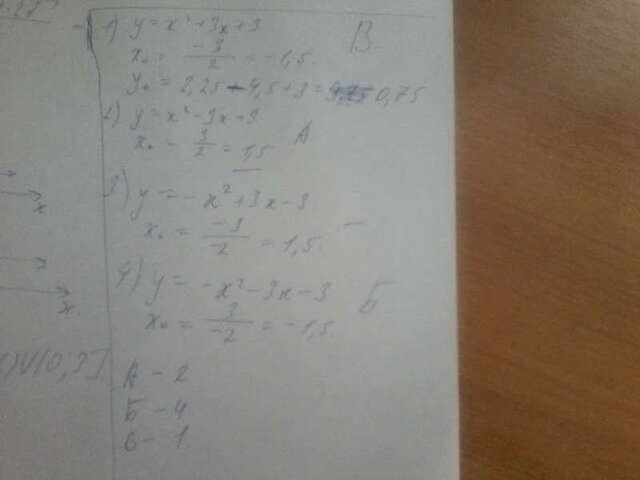 1) y = x² + 3x + 3 В
x₀ = -3/2 = -1,5.
y₀ = 2,25 - 4,5 + 3 = 0,75
2) y = x² - 3x + 3
x₀ - 3/2 = 1,5 А
3) y = -x² + 3x - 3
x₀ = -3/-2 = 1,5. –
4) y = -x² - 3x - 3
x₀ = 3/-2 = -1,5. Б
А - 2
Б - 4
В - 1
x
x